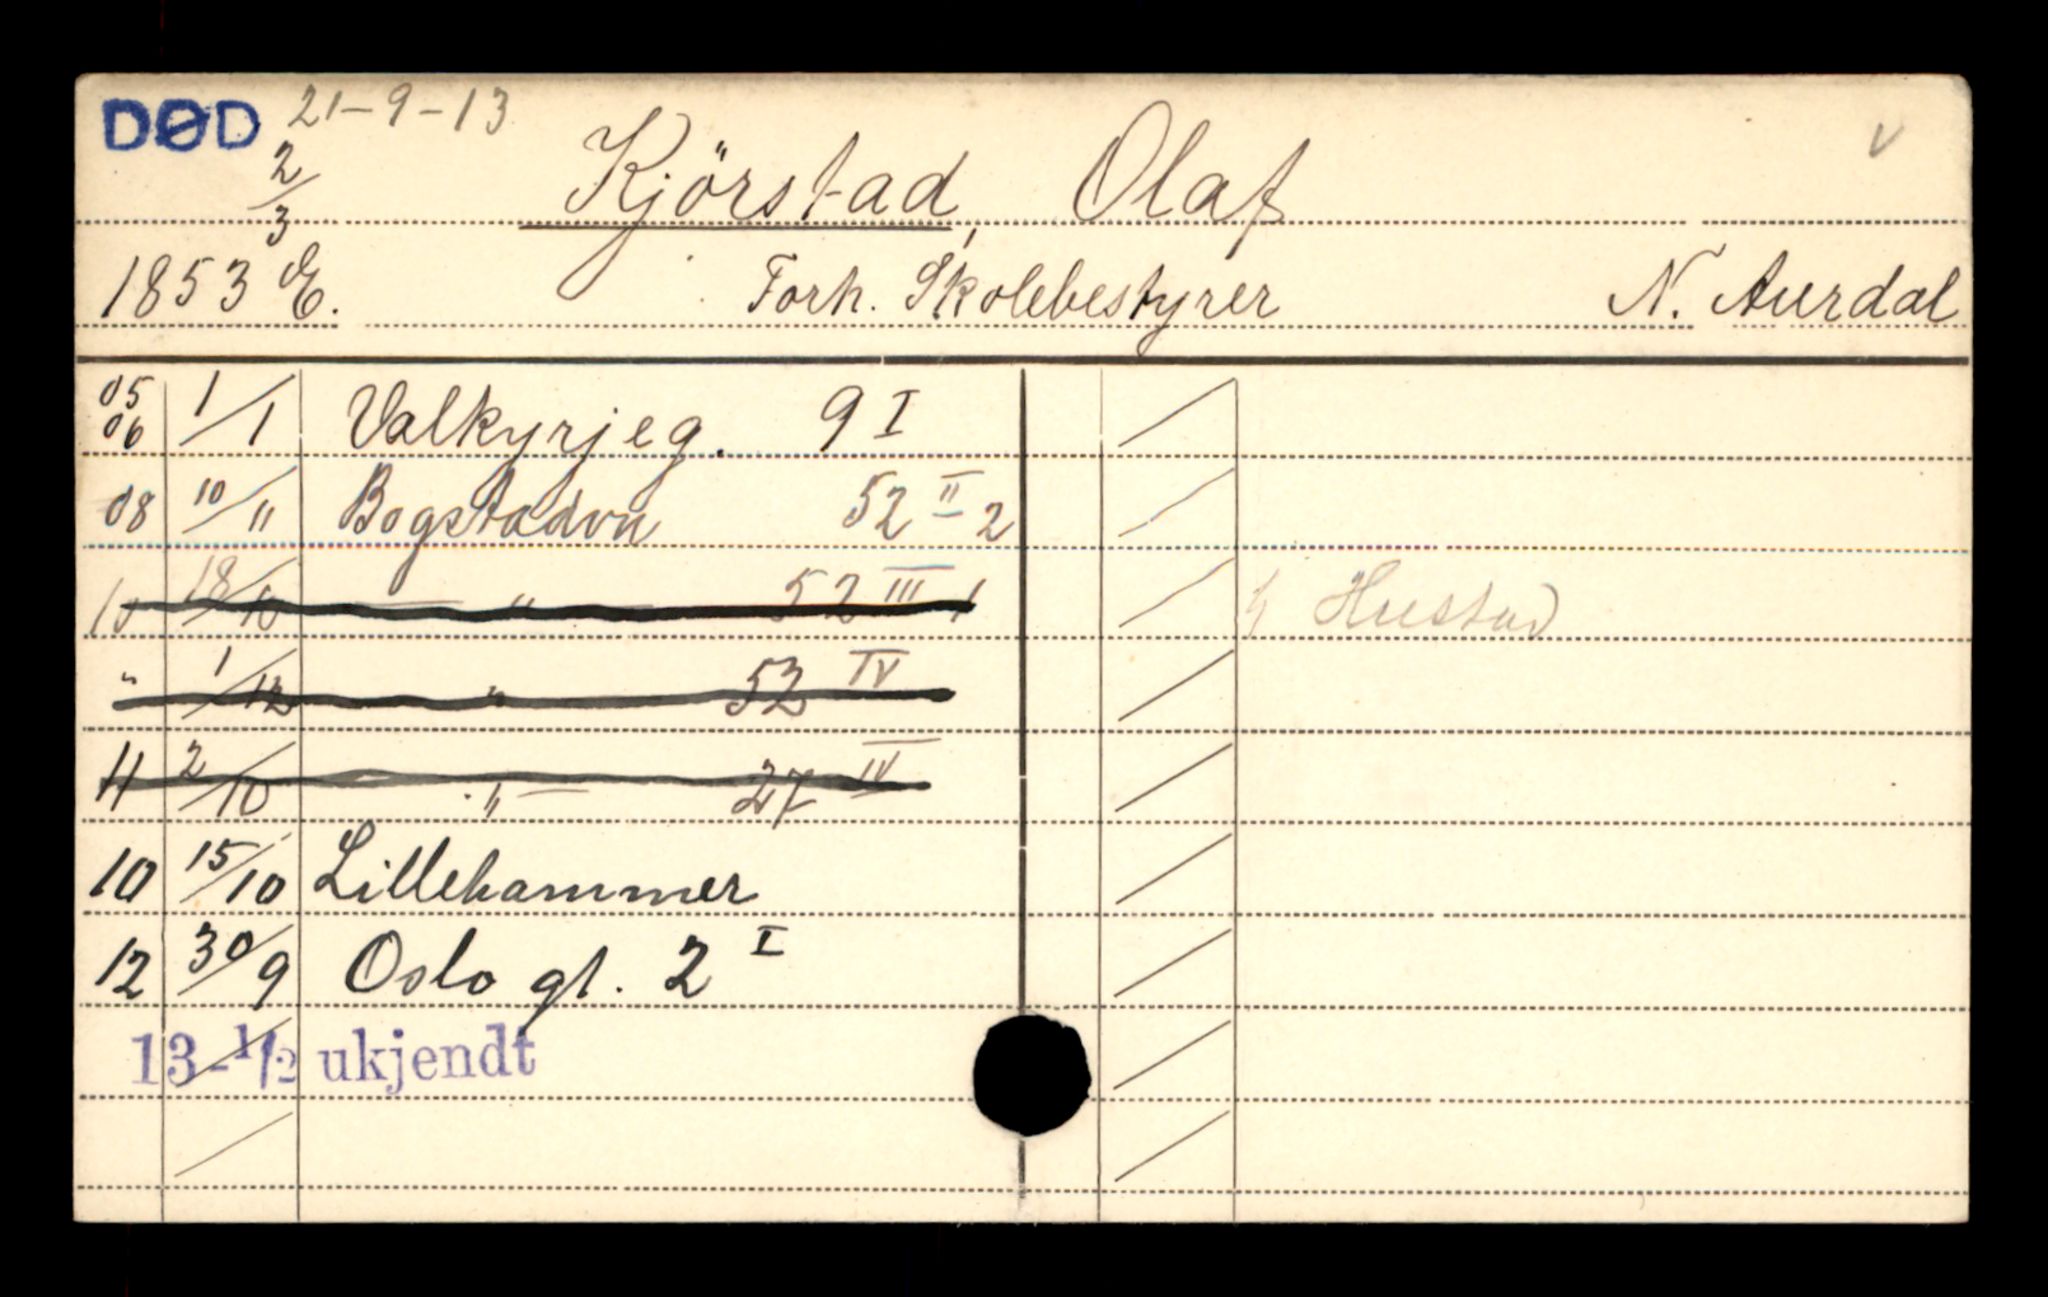 DØD 21-9-13 v
2/3 Kjörstad, Olaf
1853 E. Forh. Skolebestyrer N. Aurdal
05
06 1/1 Valkyrjeg. 9 I
08 10/11 Bogstadvn 52 II 2
10 18/10 — " — 52 III 1 Hustad
" 1/12 " 52 IV
11 2/10 — " — 27 IV
10 15/10 Lillehammer
12 30/9 Oslo gt. 2 I
13-1/2 ukjendt